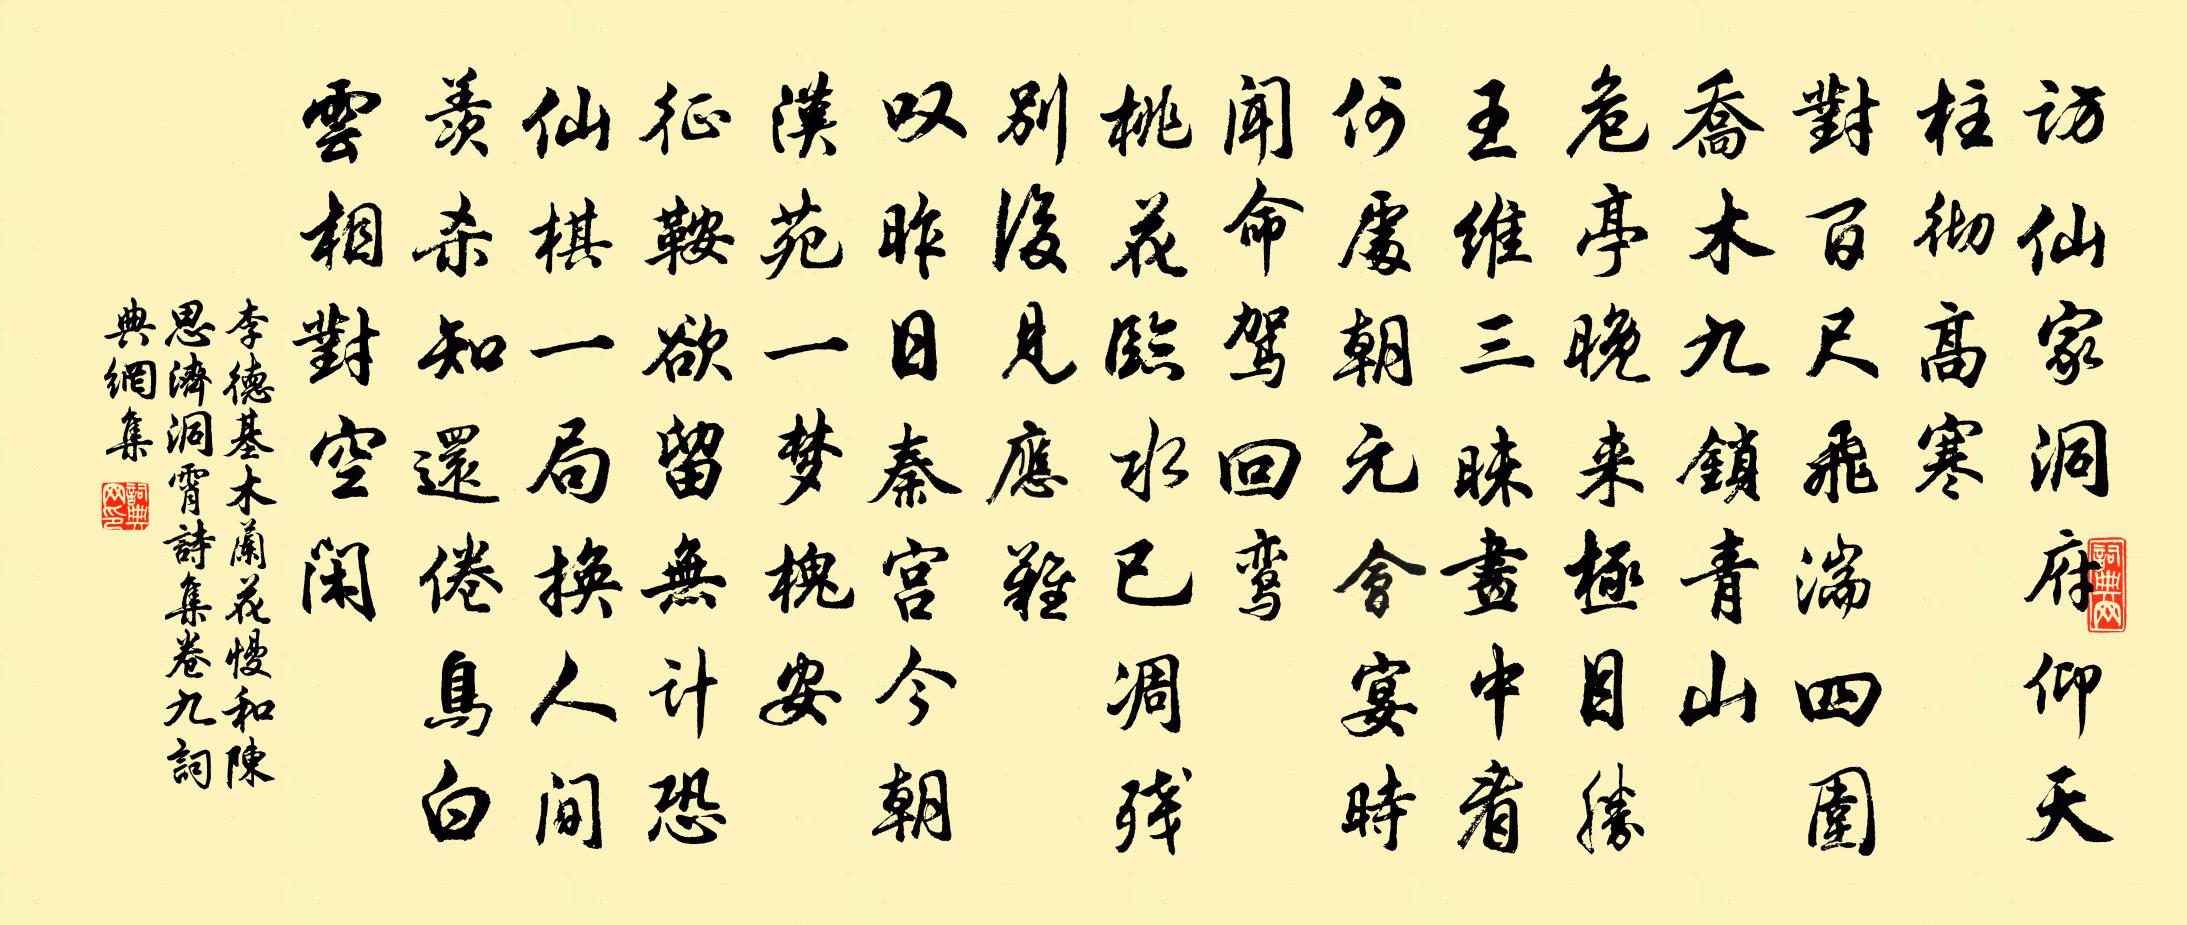 访仙家洞府仰天
柱彻高寒
對百尺飛湍四圍
喬木九鎖青山
危亭晚来極目勝
王維三昧畫中看
何處朝元會宴時
聞命驾回鸾
桃花臨水已凋残
别後见應難
叹昨日秦宫今朝
漢苑一梦槐安
征鞍欲留無计恐
仙棋一局换人间
羡杀知還倦鳥白
雲相對空闲
李德基木蘭花慢和陳
思濟洞霄詩集卷九詞
典網集
詞典网